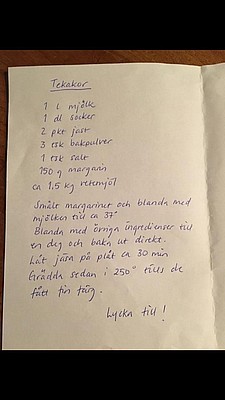 Tekakor
1 L mjölk
1 dl socker
2 pkt jäst
3 tsk bakpulver
1 tsk salt
150 g margarin
ca 1.5 kg vetemjöl
Smält margarinet och blanda med
mjölken till ca 37°
Blanda med övriga ingredienser till
en deg och baka ut direkt.
Låt jäsa på plåt ca 30 min
Grädda sedan i 250° tills de
fått fin färg.
Lycka till!